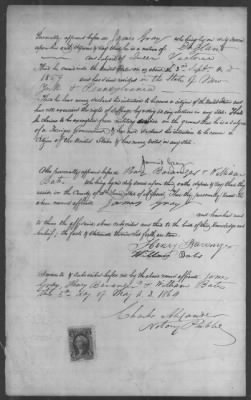 Personally appeared before me James Gray who being by me duly sworn
upon his oath, deposes & says that he is a native of England
and Subject of Queen Victoria
That he came into the United States on about the 3rd Sept A.D.
1859 and has since resided in the State of New
York & Pennsylvania
That he has never declared his intentions to become a citizen of the United States and
has not exercised the right of suffrage by voting at any election in any State. That
he claims to be exempted from military service on the ground that he is a subject
of a Foreign Government & has not declared his intention to become a
Citizen of the United States & has never voted in any state.
James Gray
Also personally appeared before me Henry & William
Bates who being by me duly sworn upon their oaths depose & say that they
reside in the County of State of That they personally know the
above named affiant James Gray
and has heard read
to them the affidavit above subscribed and that to the best of their knowledge and
belief, the facts & statements therein set forth are true.
Henry
William Bates
Sworn to & subscribed before me by the above named affiants James
Gray, Henry & William Bates
this 5th day of May A.D. 1864
Charles Alexander
Notary Public